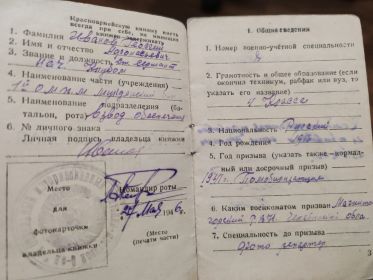 Красноармейскую книжку иметь
всегда при себе. Не имеющих
1. Фамилия Иванов Георгий
2. Имя и отчество
3. Звание и должность ст. сержант
Нач. клубом
4. Наименование части (учреждения)
5. Наименование подразделения (батальон, рота) Взвод
6. № личного знака
Личная подпись владельца книжки
Место
для
фотокарточки
владельца книжки
Командир роты
Мая 1946 г.
Место
(печати части)
I. Общие сведения
1. Номер военно-учётной специальности
2. Грамотность и общее образование (если
окончил техникум, рабфак или вуз, то
указать его название)
4 класса
3. Национальность Русский
4. Год рождения
5. Год призыва (указать также — нормальный или досрочный призыв)
1941 г.
6. Каким военкоматом призван Магнито-
горский Р.В.К. Челябинской обл.
7. Специальность до призыва
Фото репортер
3